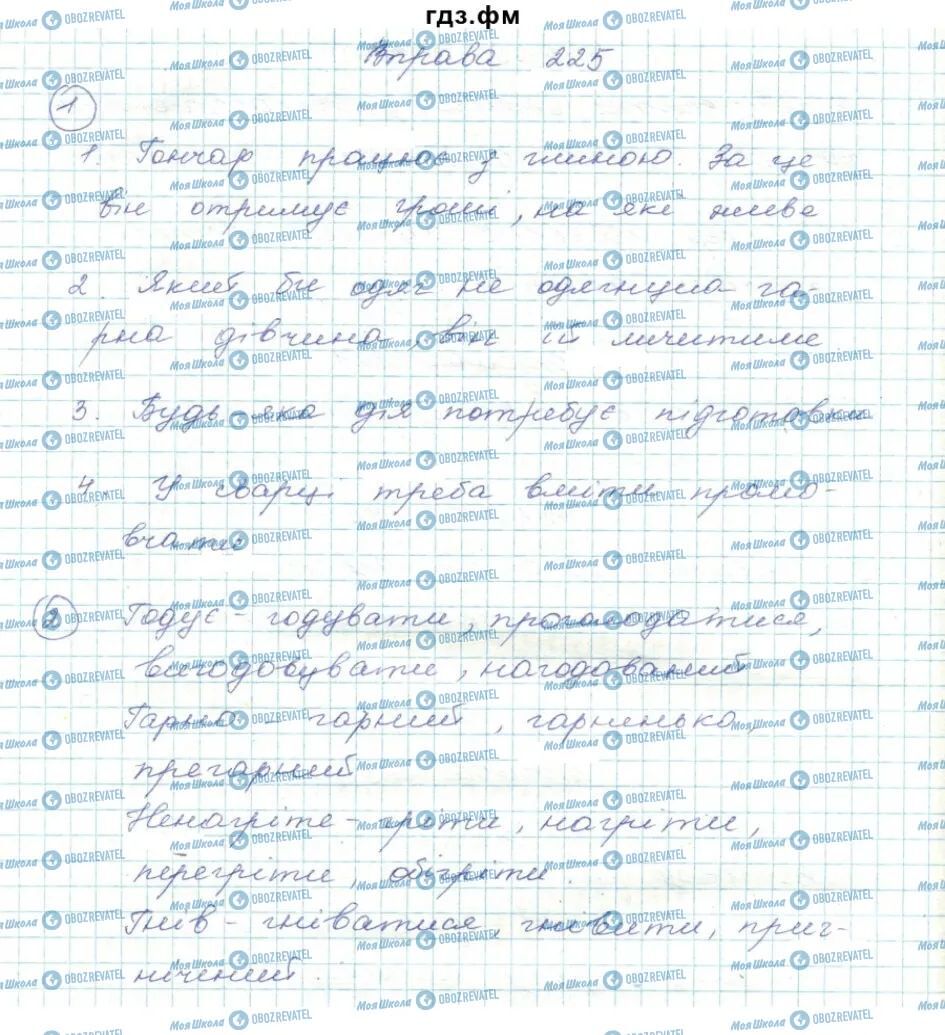 гдз.фм
Вправа 225
1
1. Гончар працює з глиною. За це
він отримує гроші, на які живе
2. Який би одяг не одягнула га-
рна дівчина, він їй личитиме
3. Будь-яка дія потребує підготовки
4. У сварці треба вміти промо-
вчати
2 Годує - годувати, проголодатися,
вигодовувати, нагодований
Гарна - гарний, гарненько,
прегарний
Ненагріте - гріти, нагріти,
перегріти, обігріти.
Гнів - гніватися, гнівити, приг-
нічений.